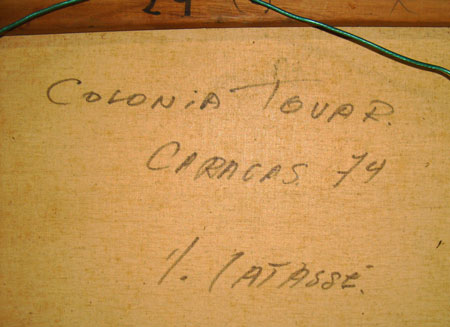 24
COLONIA TOVAR.
CARACAS 74